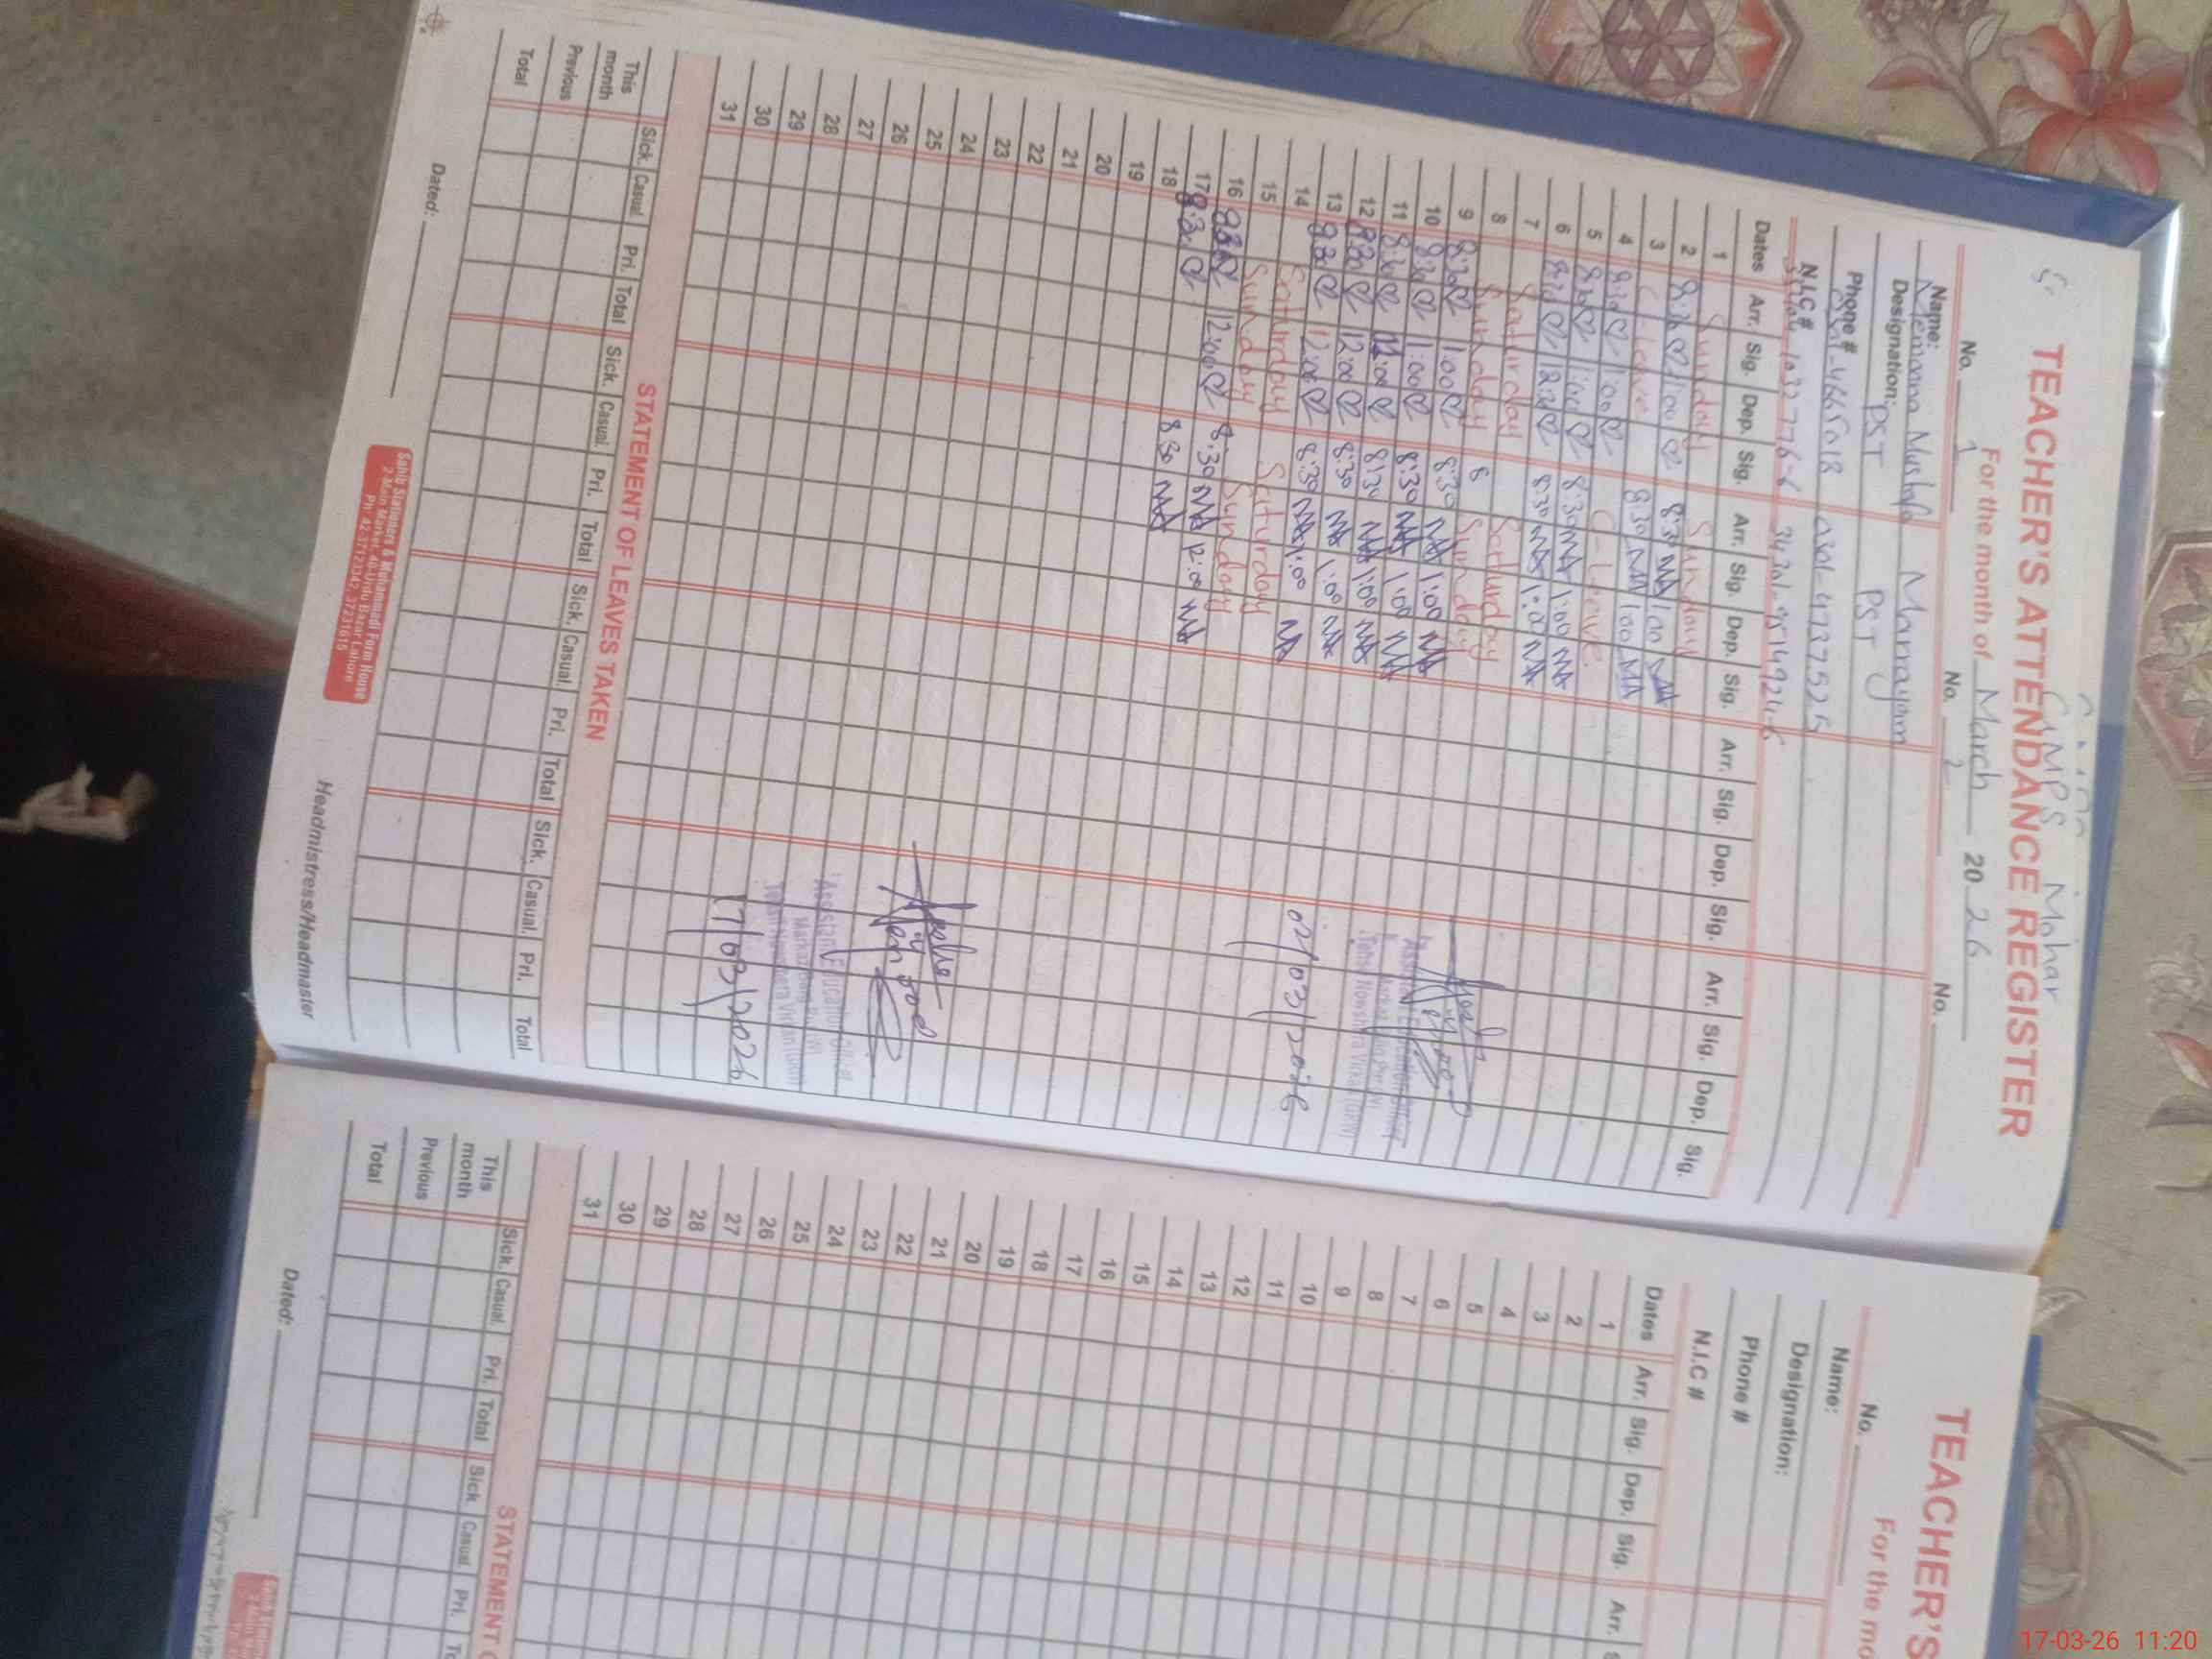 GMPS Mohar
TEACHER'S ATTENDANCE REGISTER
For the month of March 2026
No. 1 No. 2 No.
Name: Mustafa Marrayam
Designation: PST PST
Phone # 0301-4737525
N.I.C #
Dates Arr. Sig. Dep. Sig. Arr. Sig. Dep. Sig. Arr. Sig. Dep. Sig. Arr. Sig. Dep. Sig.
1 Sunday Sunday
2 8:30 1:00 8:30 MA 1:00 MA
3 C-Leave 8:30 MA 1:00 MA
4 8:30 1:00 C-Leave
5 8:30 1:00 8:30 MA 1:00 MA
6 8:30 12:30 8:30 MA 1:00 MA
7 Saturday Saturday
8 Sunday 8 Sunday
9 8:30 1:00 8:30 MA 1:00 MA
10 8:30 1:00 8:30 MA 1:00 MA
11 8:30 8:30 MA 1:00 MA
12 8:30 12:00 8:30 MA 1:00 MA
13 8:30 12:00 8:30 MA 1:00 MA
14 Saturday Saturday
15 Sunday Sunday
16 8:30 12:00 8:30 MA 12:00 MA
17 8:30 8:30 MA
18
19
20
21
22
23
24
25
26
27
28
29
30
31
Assistant Education Officer
Tehsil Nowshera Virkan (GRW)
Assistant Education Officer
Tehsil Nowshera Virkan (GRW)
17/03/2026
STATEMENT OF LEAVES TAKEN
Sick. Casual. Pri. Total Sick. Casual. Pri. Total Sick. Casual. Pri. Total Sick. Casual. Pri. Total
This month
Previous
Total
Dated:
Headmistress/Headmaster
Sahib Stationers & Muhammadi Form House
2-Main Market, 40-Urdu Bazar Lahore
Ph: 42-37123347, 37231615
TEACHER'S
For the mo
No.
Name:
Designation:
Phone #
N.I.C #
Dates Arr. Sig. Dep. Sig. Arr.
1
2
3
4
5
6
7
8
9
10
11
12
13
14
15
16
17
18
19
20
21
22
23
24
25
26
27
28
29
30
31
STATEMENT O
Sick. Casual. Pri. Total Sick. Casual. Pri. To
This month
Previous
Total
Dated:
17-03-26 11:20